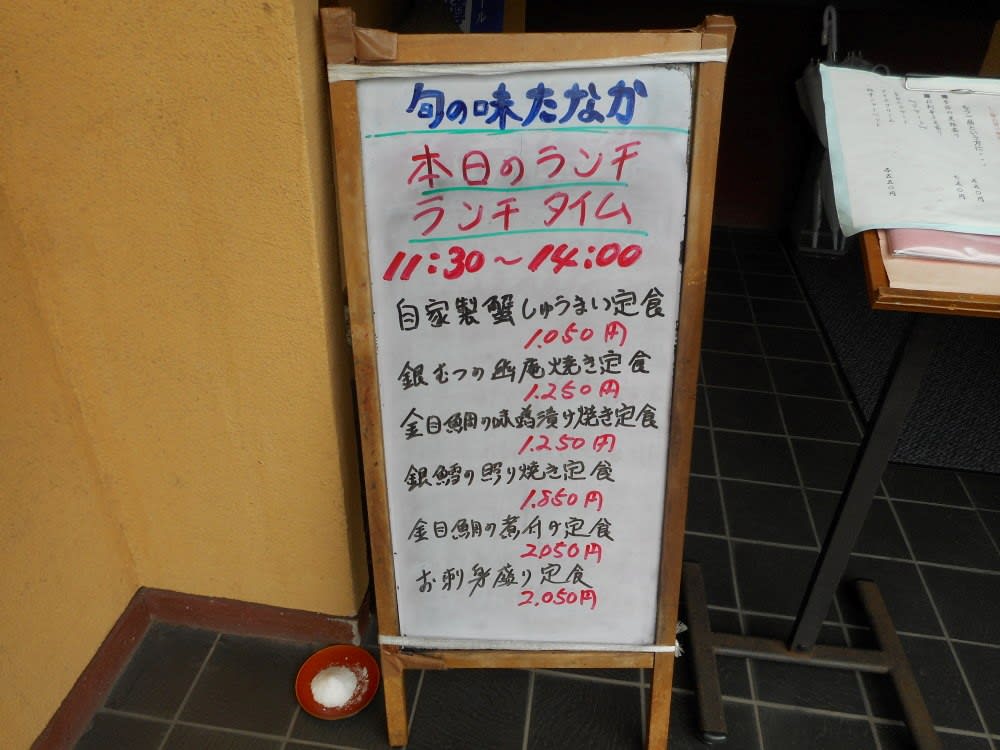 旬の味たなか
本日のランチ
ランチ タイム
11:30～14:00
自家製蟹しゅうまい定食
1.050円
銀むつの幽庵焼き定食
1.250円
金目鯛の味噌漬け焼き定食
1.250円
銀鱈の照り焼き定食
1.850円
金目鯛の煮付の定食
2050円
お刺身盛り定食
2.050円